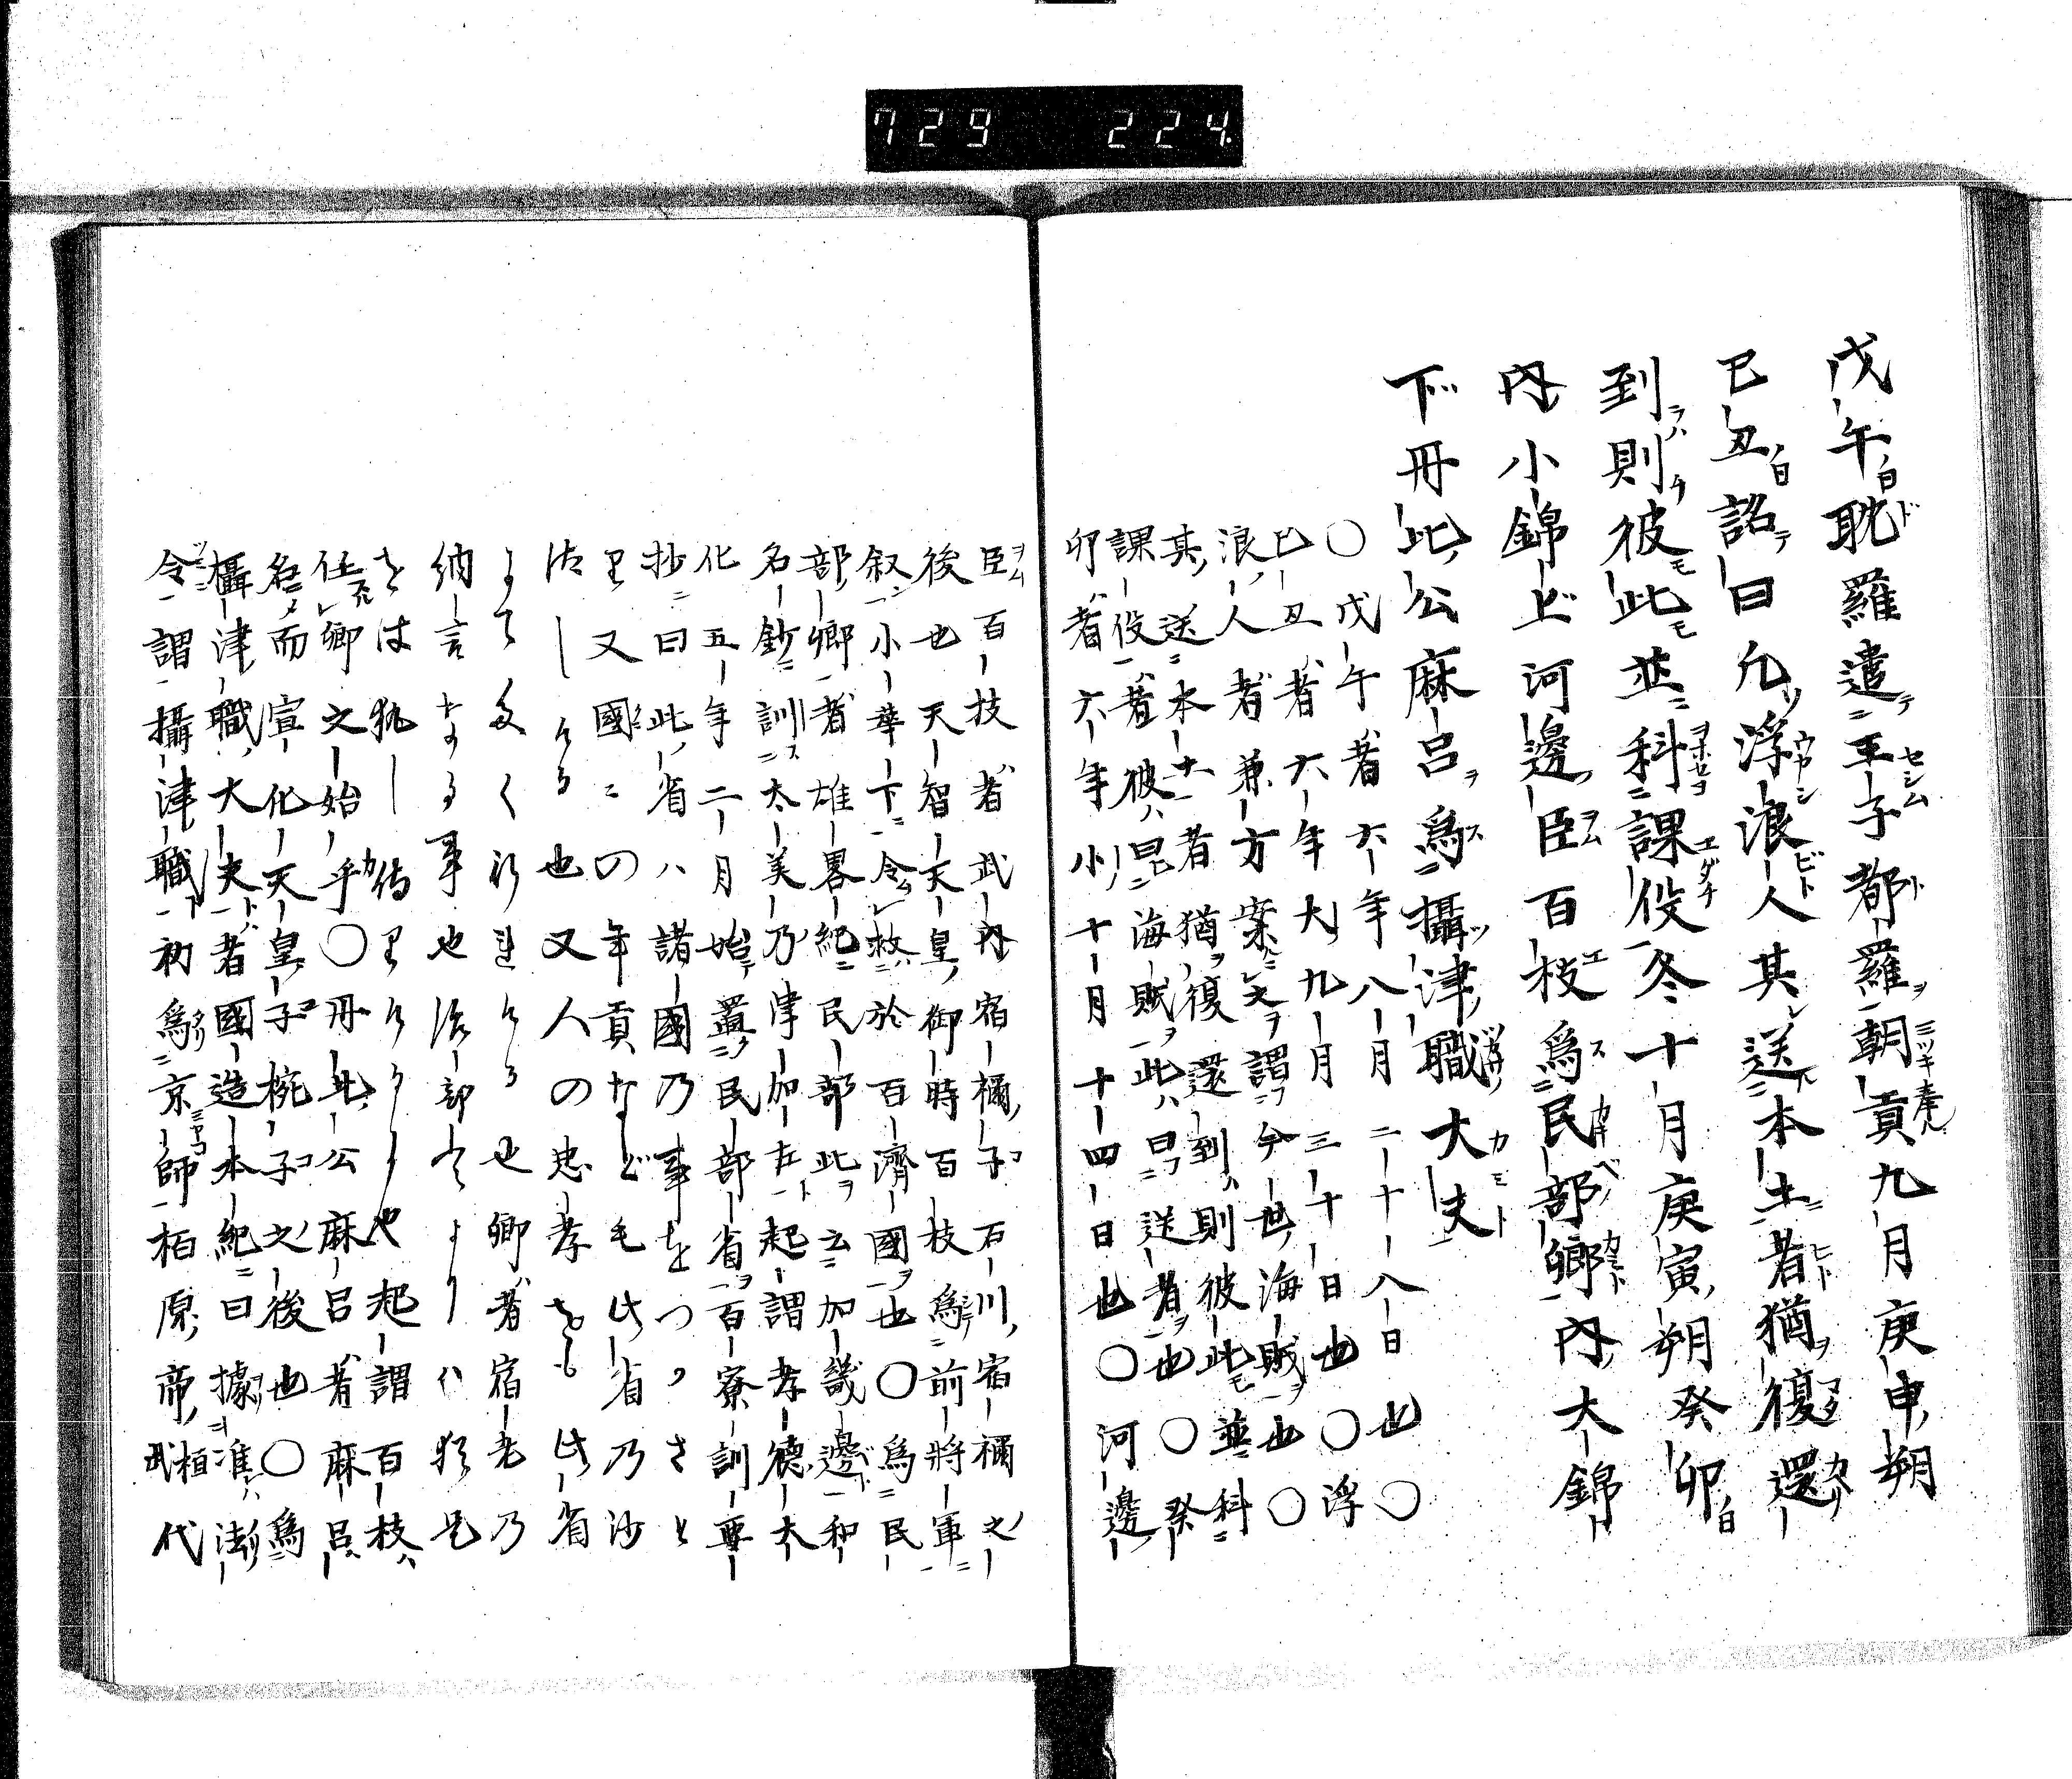 729 224
戊午日耽羅遣王子都羅朝貢九月庚申朔
己丑日詔曰凡浮浪人其送本土者猶復還
到則彼此並科課役冬十月庚寅朔癸卯日
内小錦上河邊臣百枝爲民部卿内大錦
下丹比公麻呂爲攝津職大夫
○戊午者六年八月二十八日也○
己丑者六年大九月三十日也○浮
浪人者兼方案文謂今世海賊也○
其送本土者猶復還到則彼此並科
課役者彼曰海賊此曰送者也○癸
卯者六年小十月十四日也○河邊
臣百枝者武内宿禰子石川宿禰之
後也天智天皇御時百枝爲前將軍
叙小華下令救於百濟國也○爲民
部卿者雄畧紀民部此云加畿邊和
名鈔訓太美乃津加左起謂孝德大
化五年二月始置民部省百寮訓要
抄曰此省ハ諸國乃事をつりさと
里又國ニの年貢など毛此省乃沙
汰しける也又人の忠孝をも此省
にてなく行れける也卿者宿老乃
納言なる事也治部よりハ猶是
をは執し侍りけり也起謂百枝
任卿文始乎○丹比公麻呂者麻呂
名而宣化天皇子椀子之後也○爲
攝津職大夫者國造本紀曰據准法
令謂攝津職初爲京師柏原帝桓武代